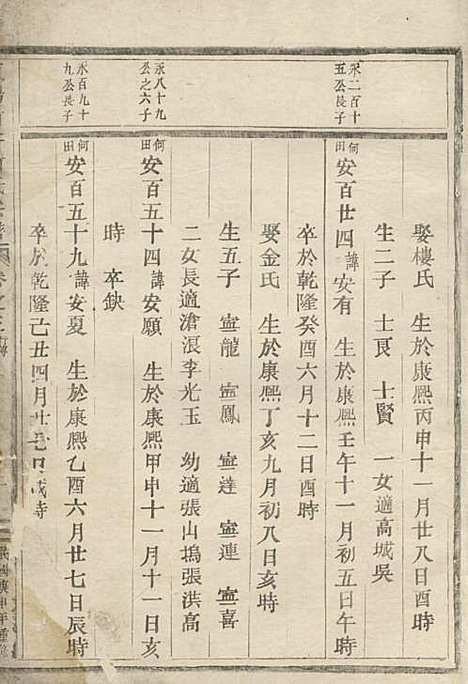 永二百十
五公長子
永八十九
公之六子
永百九十
九公長子
娶樓氏 生於康熙丙申十一月廿八日酉時
生二子 士良 士賢 一女適高城吳
何田安百廿四諱安有 生於康熙壬午十一月初五日午時
卒於乾隆癸酉六月十二日酉時
娶金氏 生於康熙丁亥九月初八日亥時
生五子 寍龍 寍鳳 寍達 寍連 寍喜
二女長適滄浪李光玉 幼適張山塢張洪高
何田安百五十四諱安願 生於康熙甲申十一月十一日亥
時 卒缺
何田安百五十九諱安夏 生於康熙乙酉六月廿七日辰時
卒於乾隆己丑四月廿 日戌時